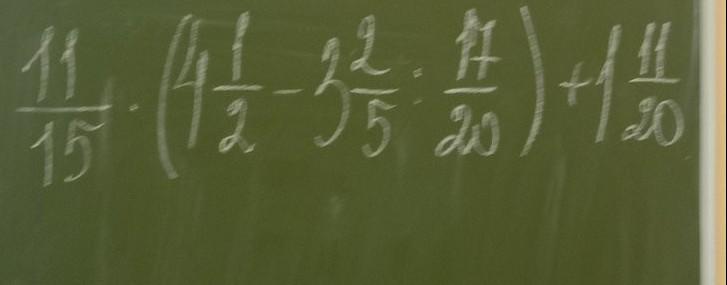 11/15 · (4 1/2 - 3 2/5 : 17/20) + 1 11/20